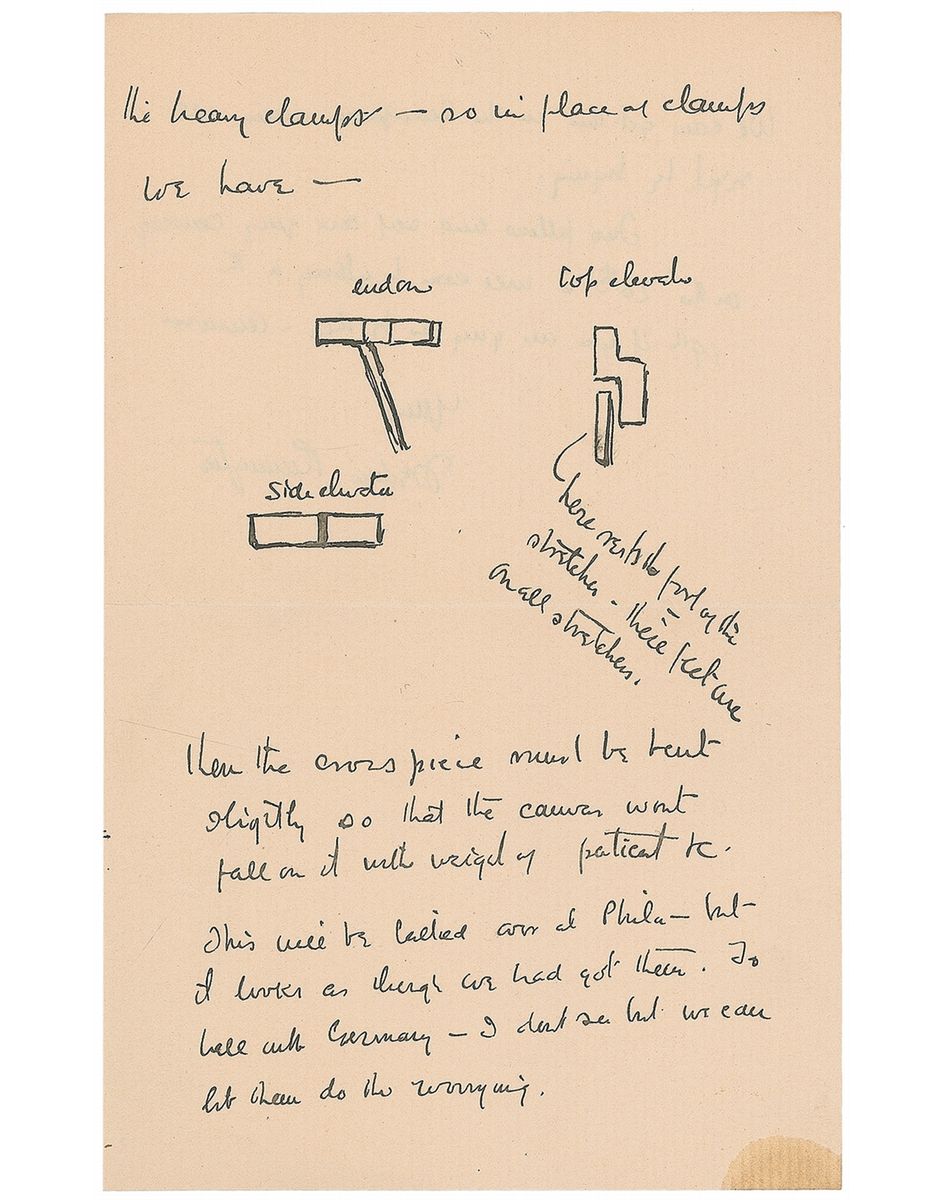 the heavy clamps — so in place of clamps
we have —
end on
top elevatn
side elevatn
here rests the foot of the
stretcher - these feet are
on all stretchers.
then the cross piece must be bent
slightly so that the canvas wont
fall on it with weight of patient &c.
This will be talked over at Phila — but
it looks as though we had got them. To
hell with Germany — I dont see but we can
let them do the worrying.